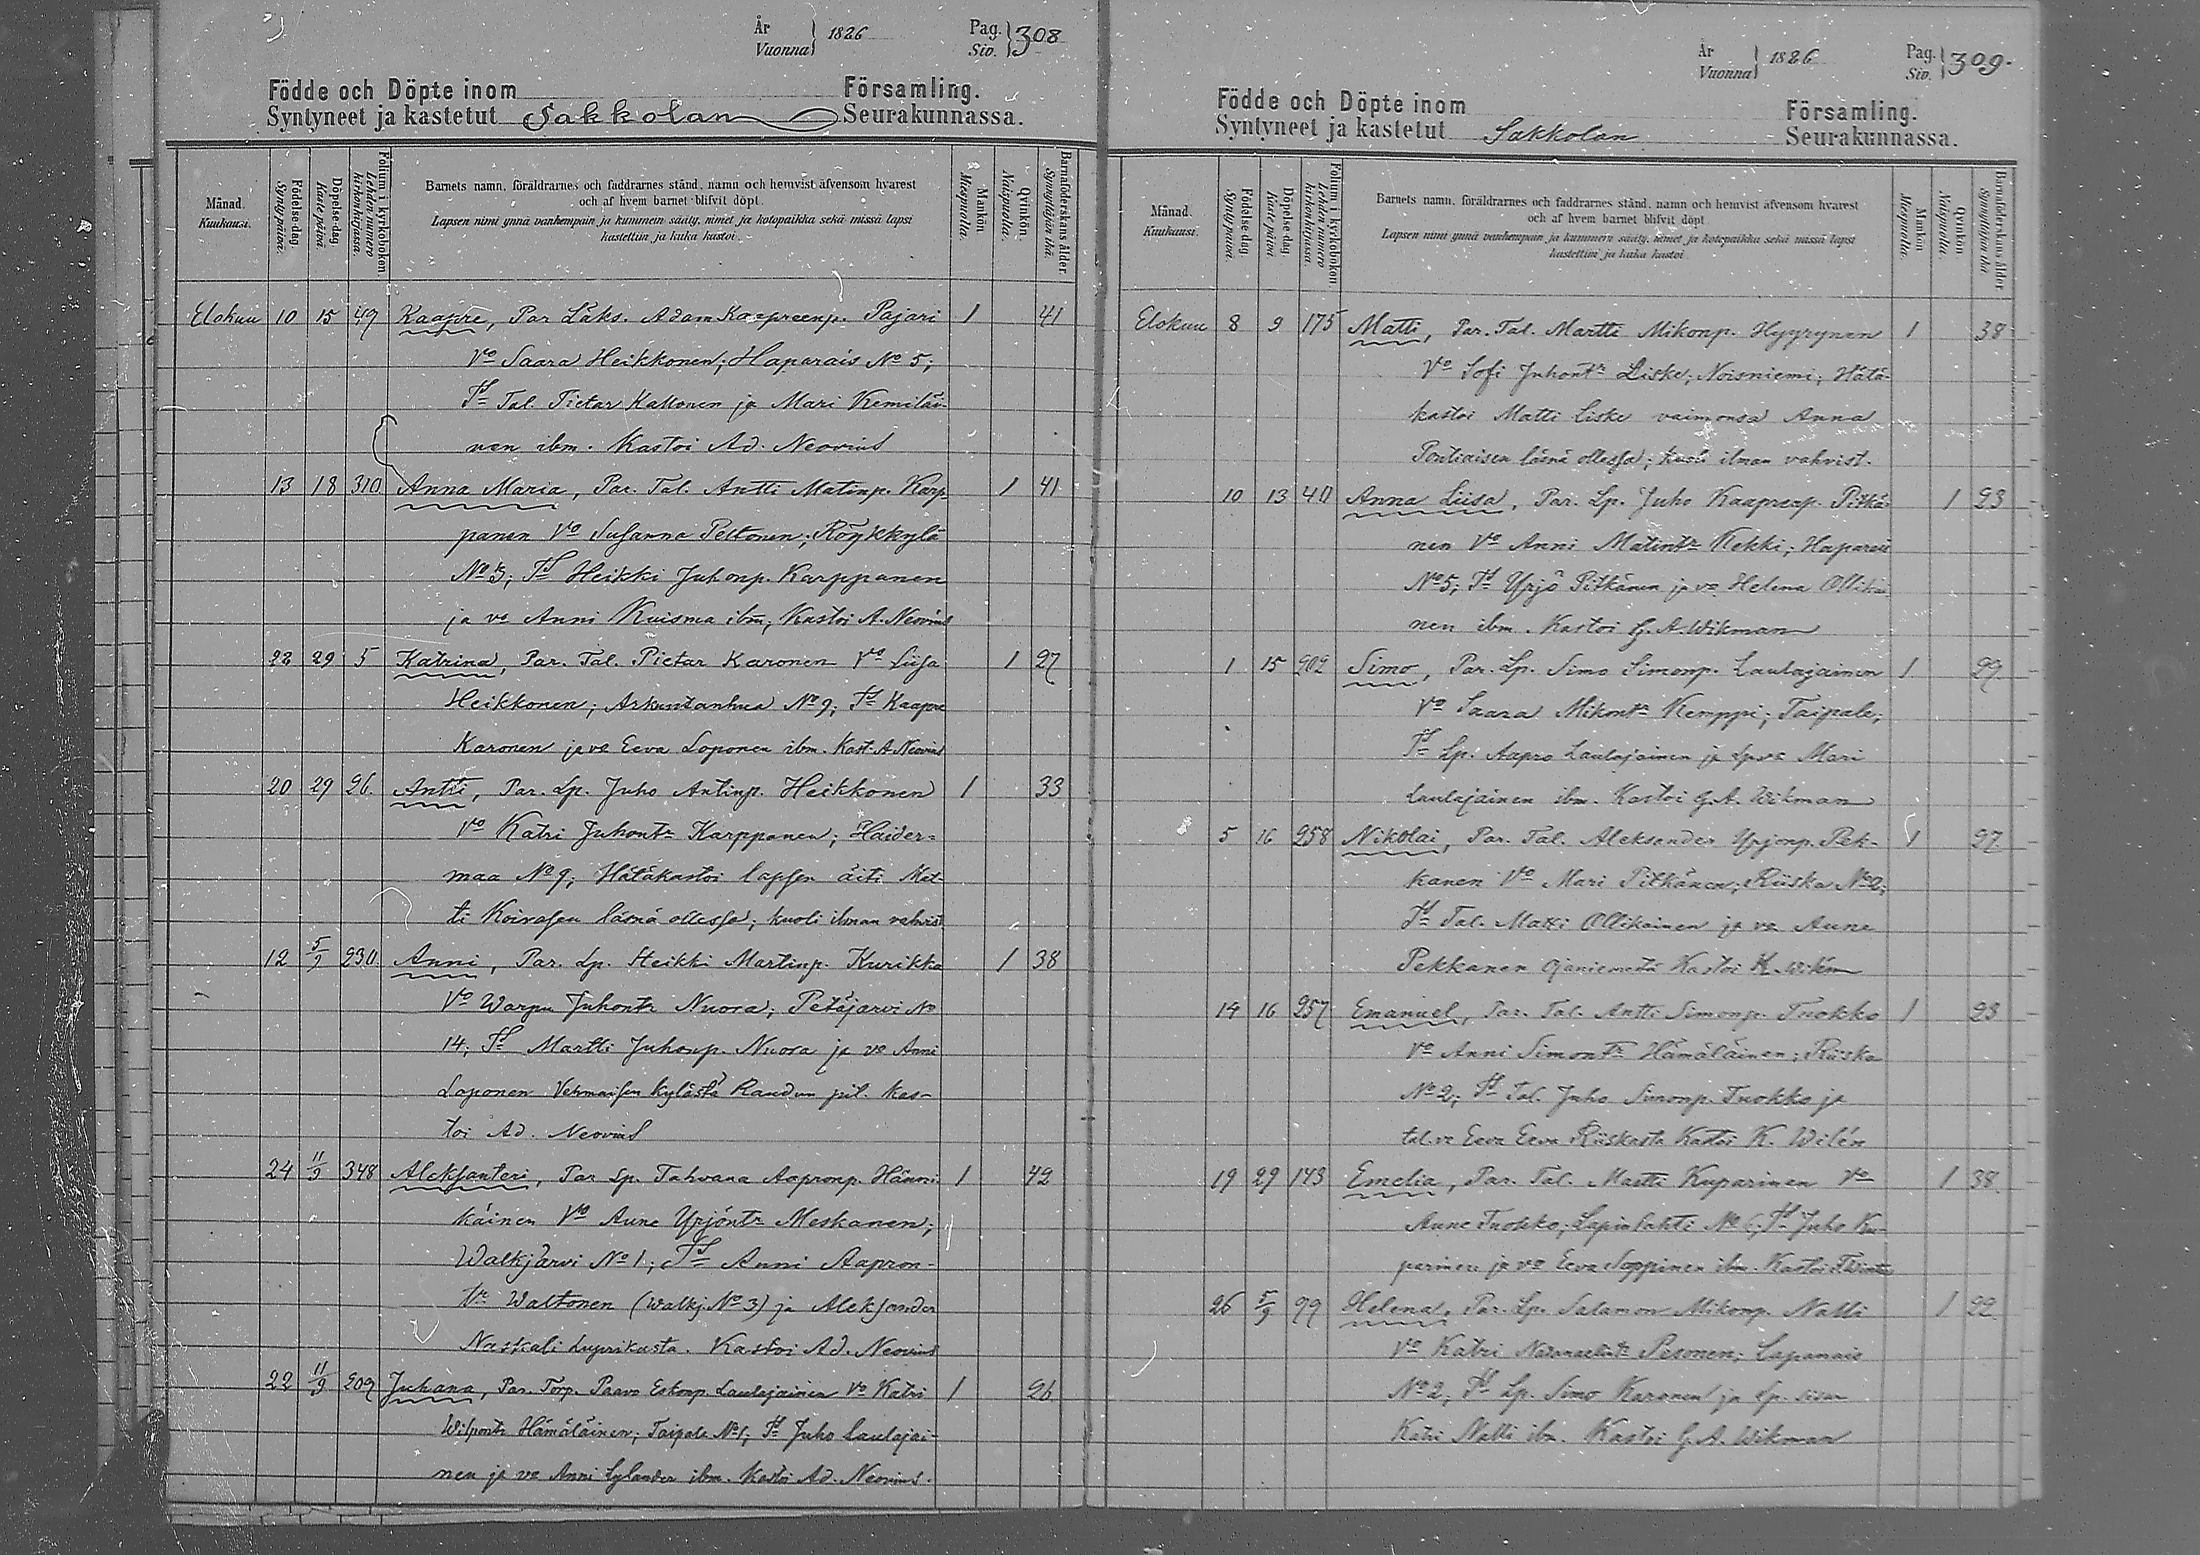 År
Vuonna } 1826
Pag.
Siv. } 308
Födde och Döpte inom Församling.
Syntyneet ja kastetut Sakkolan Seurakunnassa.
Månad. Kuukausi.
Födelse-dag Syntymäpäivä.
Döpelse-dag Kastepäivä
Folium i kyrkoboken. Lehden numero kirkonkirjassa.
Barnets namn, föräldrarnes och faddrarnes stånd, namn och hemvist äfvensom hvarest
och af hvem barnet blifvit döpt.
Lapsen nimi ynnä vanhempain ja kummein sääty, nimet ja kotopaikka sekä missä lapsi
kastettiin ja kuka kastoi.
Mankön. Miespuolia.
Qvinkön. Naispuolia.
Barnaföderskans ålder.
Elokuu 10 15 49 Kaapre, Par Läks. Adam Kaapreenp. Pajari 1 41
Vo Saara Heikkonen; Haparais No 5;
Td Tal. Pietar Kallonen ja Mari Kemiläi-
nen ibm. Kastoi Ad. Neovius
13 18 310 Anna Maria, Par. Tal. Antti Matinp. Karp 1 41
panen Vo Susanna Peltonen; Röykkylä
No 3; Td Heikki Juhonp. Karppanen
ja vo Anni Kuisma ibm; Kastoi A. Neovius
22 29 5 Katrina, Par. Tal. Pietar Karonen Vo Liisa 1 27
Heikkonen; Arkuntanhua No 9; Td Kaapre
Karonen ja vo Eeva Loponen ibm. Kast. A. Neovius
20 29 26 Antti, Par. Lp. Juho Antinp. Heikkonen 1 33
Vo Katri Juhontr Karppanen; Haider-
maa No 9; Hätäkastoi lapsen äiti Mat-
ti Koivasen läsnä ollessa; kuoli ilman vahvist
12 5/9 230 Anni, Par. Lp. Heikki Martinp. Kurikka 1 38
Vo Warpu Juhontr Nuora; Petäjärvi No
14; Td Martti Juhonp. Nuora ja vo Anni
Loponen Vehmaisen kylästä Raudun pit. kas-
toi Ad. Neovius
24 11/9 348 Aleksanteri, Par Lp. Tahvana Aapronp. Hänni- 1 42
käinen Vo Aune Yrjöntr Meskanen;
Walkjärvi No 1; Td Anni Aapron-
tr Waltonen (Walkj. No 3) ja Aleksander
Naskali Kastoi Ad. Neovius
22 11/9 209 Juhana, Par. Torp. Paavo Eskonp. Laulajainen Vo Katri 1 26
Hämäläinen; Taipale No 1; Td Juho Laulajai-
nen ja vo Anni Sylander ibm. Kastoi Ad. Neovius.
År
Vuonna } 1826
Pag.
Siv. } 309.
Födde och Döpte inom Församling.
Syntyneet ja kastetut Sakkolan Seurakunnassa.
Månad. Kuukausi.
Födelse-dag Syntymäpäivä.
Döpelse-dag Kastepäivä
Folium i kyrkoboken. Lehden numero kirkonkirjassa.
Barnets namn, föräldrarnes och faddrarnes stånd, namn och hemvist äfvensom hvarest
och af hvem barnet blifvit döpt.
Lapsen nimi ynnä vanhempain ja kummein sääty, nimet ja kotopaikka sekä missä lapsi
kastettiin ja kuka kastoi.
Mankön Miespuolia.
Qvinkön Naispuolia.
Barnaföderskans ålder
Elokuu 8 9 175 Matti, Par. Tal. Martti Mikonp. Hyyrynen 1 38
Vo Sofi Juhontr Liske; Noisniemi; Hätä-
kastoi Matti Liske vaimonsa Anna
Pontiaisen läsnä ollessa; kuoli ilman vahvist.
10 13 40 Anna Liisa, Par. Lp. Juho Kaapreep. Pitkä- 1 23
nen Vo Anni Matintr Kekki; Haparais
No 5; Td Yrjö Pitkänen ja vo Helena Ollikai
nen ibm. Kastoi G. A. Wikman
1 15 202 Simo, Par. Lp. Simo Simonp. Laulajainen 1 29
Vo Saara Mikontr Kemppi; Taipale;
Td Lp. Aapro Laulajainen ja Mari
Laulajainen ibm. Kastoi G. A. Wikman
5 16 258 Nikolai, Par. Tal. Aleksander Yrjönp. Pek- 1 27
kanen Vo Mari Pitkänen; Riiska No 2;
Td Tal. Matti Ollikainen ja vo Aune
Pekkanen Ojaniemeltä Kastoi
14 16 257 Emanuel, Par. Tal. Antti Simonp. Tuokko 1 23
Vo Anni Simontr Hämäläinen; Riiska
No 2; Td Tal. Juho Simonp. Tuokko ja
tal. vo Eeva Eeva Riiskasta Kastoi K. Wilén
19 29 143 Emelia, Par. Tal. Martti Kuparinen Vo 1 38
Aune Tuokko; Lapinlahti No Td Juho Ku-
parinen ja vo Eeva Soppinen ibm. Kastoi
26 5/9 99 Helena, Par. Lp. Salamon Mikonp. Natti 1 22
Vo Katri Pesonen; Lapanais
No 2; Td Lp. Simo Karonen ja Lp. sisar
Katri Natti ibm. Kastoi G. A. Wikman